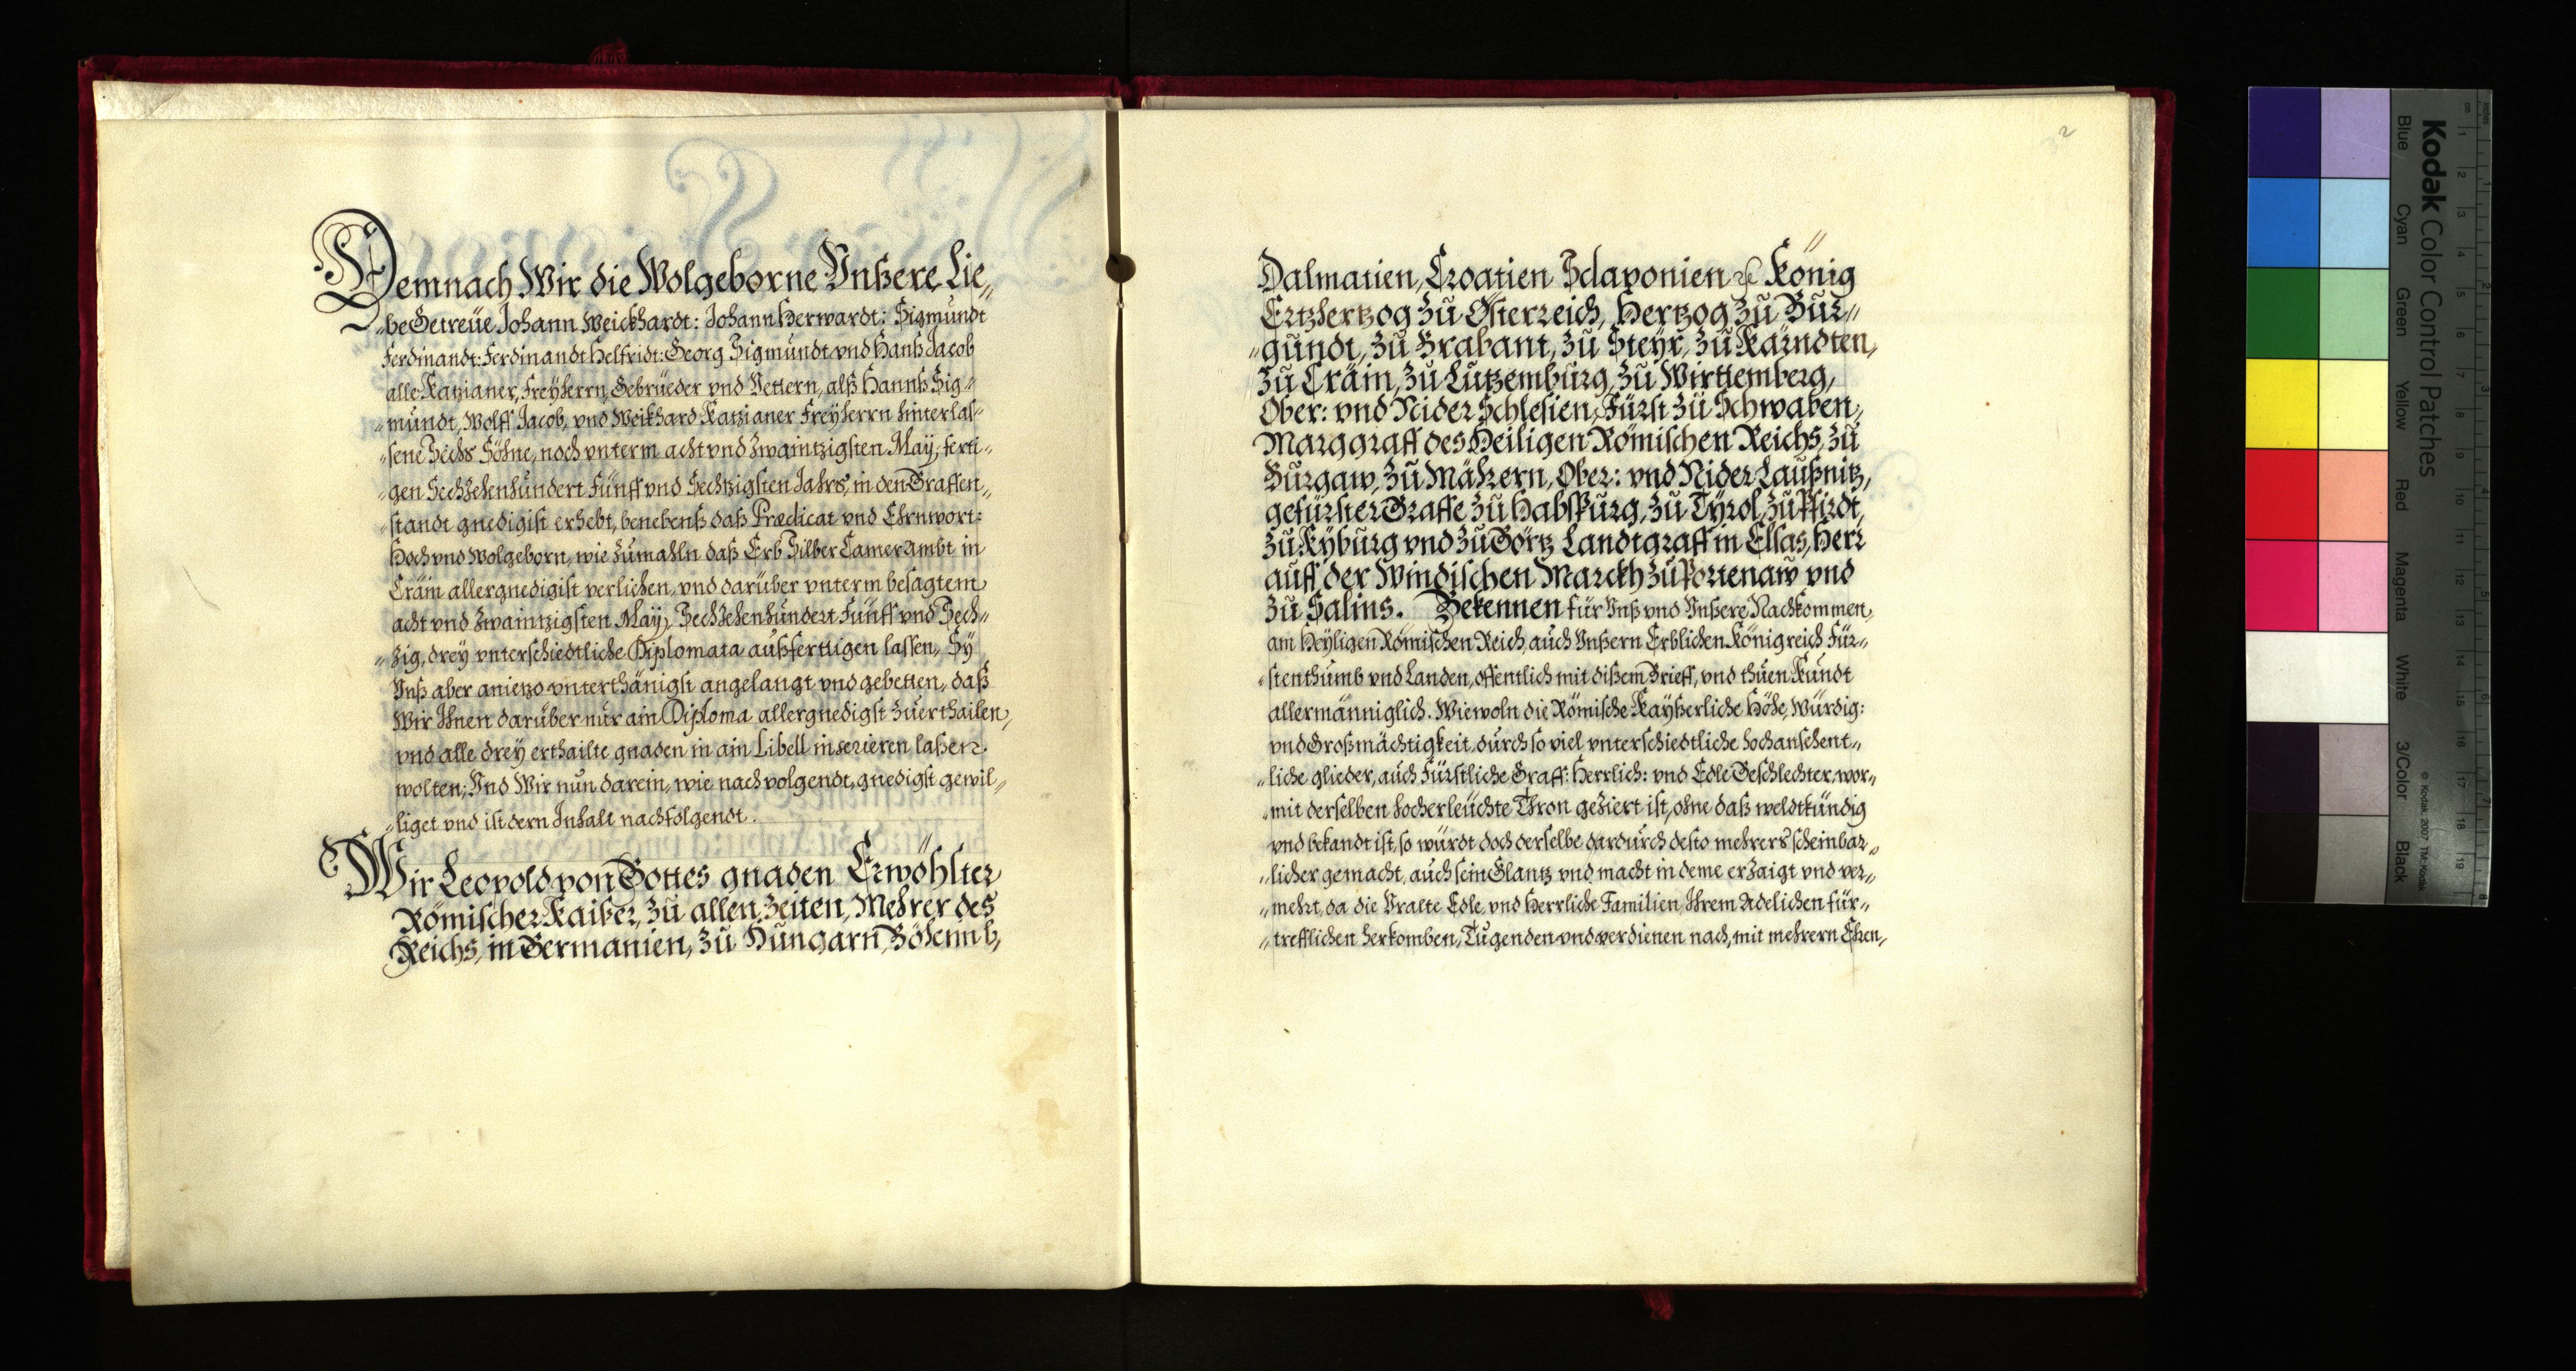 Demnach Wir die Wolgeborne Vnßere Lie„
„be Getreüe Johann Weickhardt: Johann Herwardt: Sigmundt
Ferdinandt: Ferdinandt Helfridt: Georg Sigmundt vnd Hanß Jacob
alle Katzianer, Freyherrn, Gebrüeder vnd Vettern, alß Hannß Sig„
„mundt, Wolff Jacob, vnd Weikhard Katzianer Freyherrn hinterlas„
„sene Sechs Söhne, noch vnterm acht vnd zwaintzigsten May, ferti„
„gen Sechzehenhundert Fünff vnd Sechtzigsten Jahrs, in den Graffen„
„standt gnedigist erhebt, benebenß daß Prædicat vnd Ehrnwort:
Hoch vnd Wolgeborn, wie zumahln daß Erb Silber Camerambt in
Crain allergnedigist verlichen, vnd darüber vnterm besagtem
acht vnd zwaintzigsten May, Sechzehenhundert Fünff vnd Sech„
„zig, drey vnterschiedtliche Diplomata außfertigen lassen, Sy
Vnß aber anietzo vnterthänigst angelangt vnd gebetten, daß
Wir Ihnen darüber nur ain Diploma allergnedigst zuerthailen,
vnd alle drey erthailte gnaden in ain Libell inserieren laßen
wolten; Vnd Wir nun darein, wie nach volgendt, gnedigst gewil„
„liget vnd ist dern Inhalt nachfolgendt.
Wir Leopold von Gottes gnaden Erwöhlter
Römischer Kaißer, zu allen Zeiten, Mehrer des
Reichs, in Germanien, zu Hungarn, Böheimb,
2
Dalmatien, Croatien Sclavonien &c König
Ertzhertzog zu Österreich, Hertzog zu Bur„
„gundt, zu Brabant, zu Steyr, zu Kärndten,
zu Crain, zu Lützemburg, zu Wirttemberg,
Ober: vnd Nider Schlesien, Fürst zu Schwaben,
Marggraff des Heiligen Römischen Reichs, zu
Burgaw, zu Mährern, Ober: vnd Nider Laußnitz,
gefürster Graffe zu Habspurg, zu Tyrol, zu Pfirdt,
zu Kyburg vnd zu Görtz Landtgraff in Elsas, Herr
auff der Windischen Marckh zu Portenaw vnd
zu Salins. Bekennen für Vnß vnd Vnßere Nachkommen,
am Heyligen Römischen Reich, auch Vnßern Erblichen Königreich Für„
„stenthumb vnd Landen, offentlich mit dißem Brieff, vnd thuen Kundt
allermänniglich. Wiewoln die Römische Kayßerliche Höhe, Würdig:
vnd Großmächtigkeit, durch so viel vnterschiedtliche hochansehent„
„liche glieder, auch Fürstliche Graff: Herrlich: vnd Edle Geschlechter, wor„
„mit derselben hocherleüchte Thron geziert ist, ohne daß weldtkündig
vnd bekandt ist, so würdt doch derselbe dardurch desto mehrers scheinbar„
„licher gemacht, auch sein Glantz vnd macht in deme erzaigt vnd ver„
„mehrt, da die Vralte Edle, vnd Herrliche Familien, Ihrem Adelichen für„
„trefflichen herkomben, Tugenden vnd verdienen nach, mit mehrern Ehren,
Kodak Color Control Patches
Blue Cyan Green Yellow Red Magenta White 3/Color Black
© Kodak, 2007 TM: Kodak